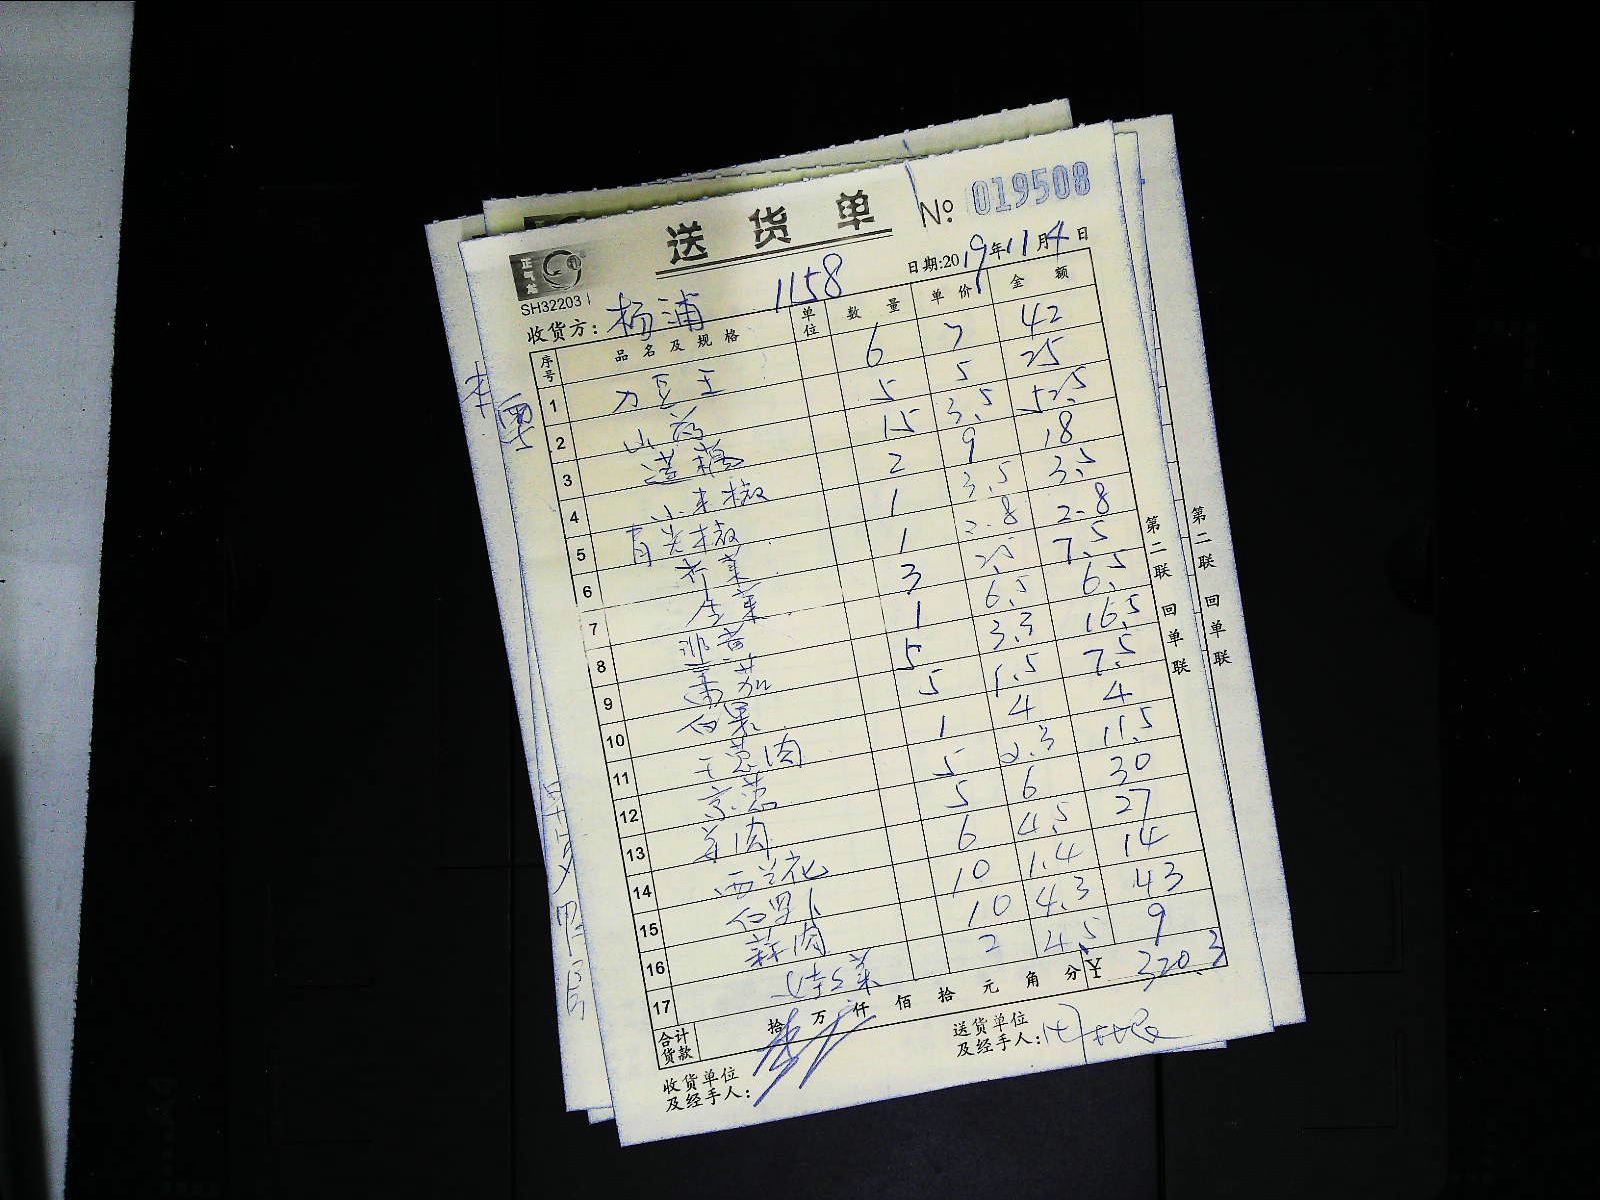 送货单 № 019508
正气
SH32203
日期:2019年11月4日
收货方: 杨浦 1158
序号 品名及规格 单位 数量 单价 金额
1 刀豆王 6 7 42
2 山药 5 5 25
3 15 3.5 52.5
4 小米椒 2 9 18
5 青尖椒 1 3.5 3.5
6 木菜 1 2.8 2.8
7 生菜 3 2.5 7.5
8 韭黄 1 6.5 6.5
9 番茄 5 3.3 16.5
10 白果 5 1.5 7.5
11 干葱肉 1 4 4
12 京葱 5 2.3 11.5
13 羊肉 5 6 30
14 西兰花 6 4.5 27
15 白萝卜 10 1.4 14
16 蒜肉 10 4.3 43
17 娃娃菜 2 4.5 9
合计货款 拾 万 仟 佰 拾 元 角 分 ¥ 320.3
收货单位及经手人:
送货单位及经手人:
第二联 回单联
第二联 回单联